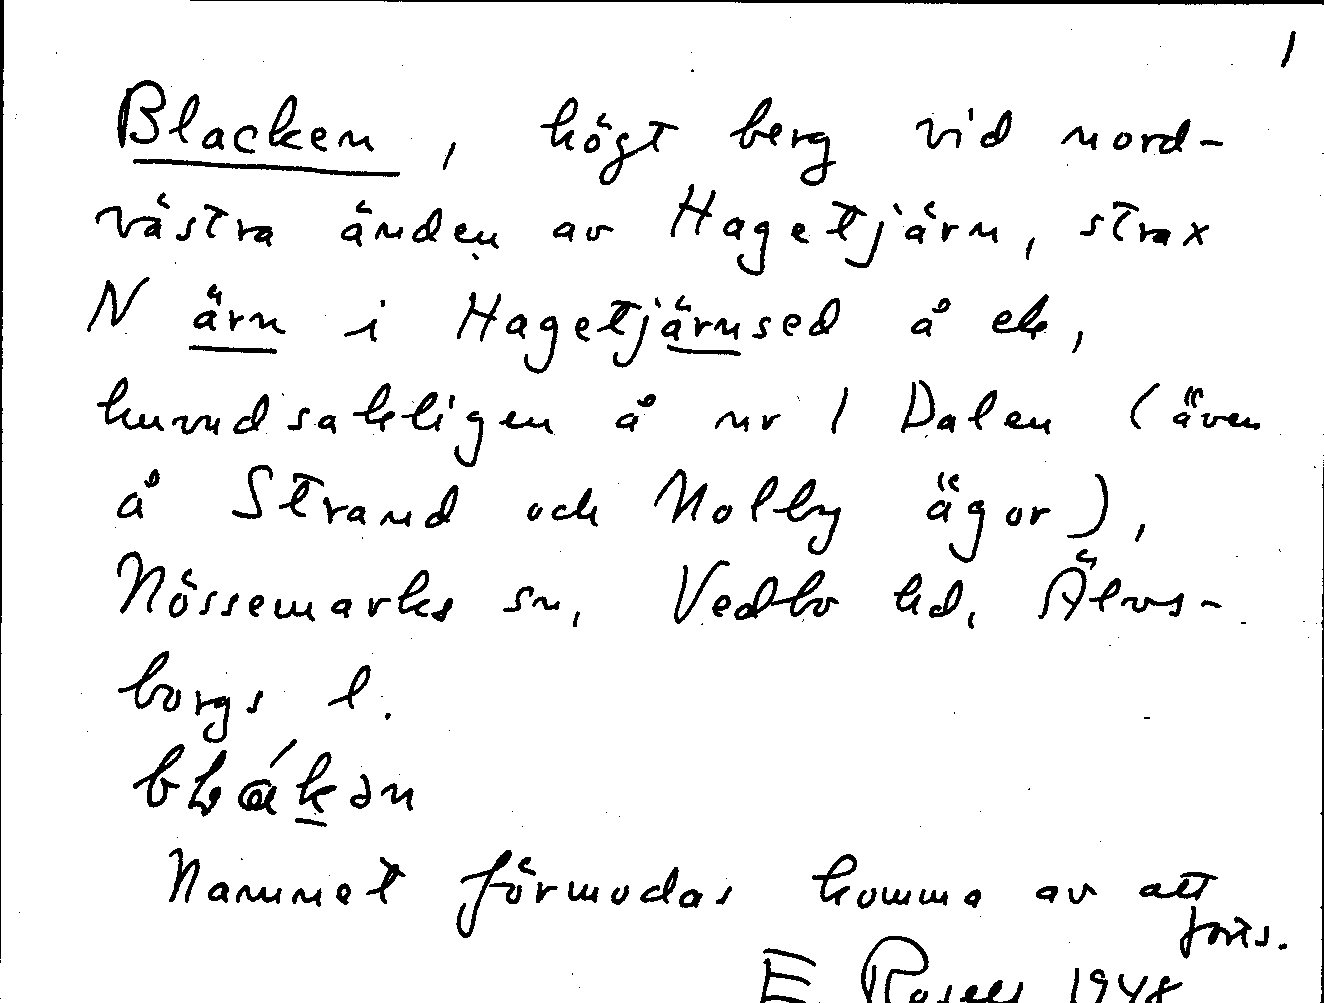 1
Blacken, högt berg vid nord-
västra änden av Hagetjärn, strax
N ärn i Hagetjärnsed å ek,
huvudsakligen å nr 1 Dalen (även
å Strand och Nolby ägor),
Nössemarks sn, Vedbo hd, Älvs-
borgs l.
Namnet förmodas komma av att
forts.
E 1948